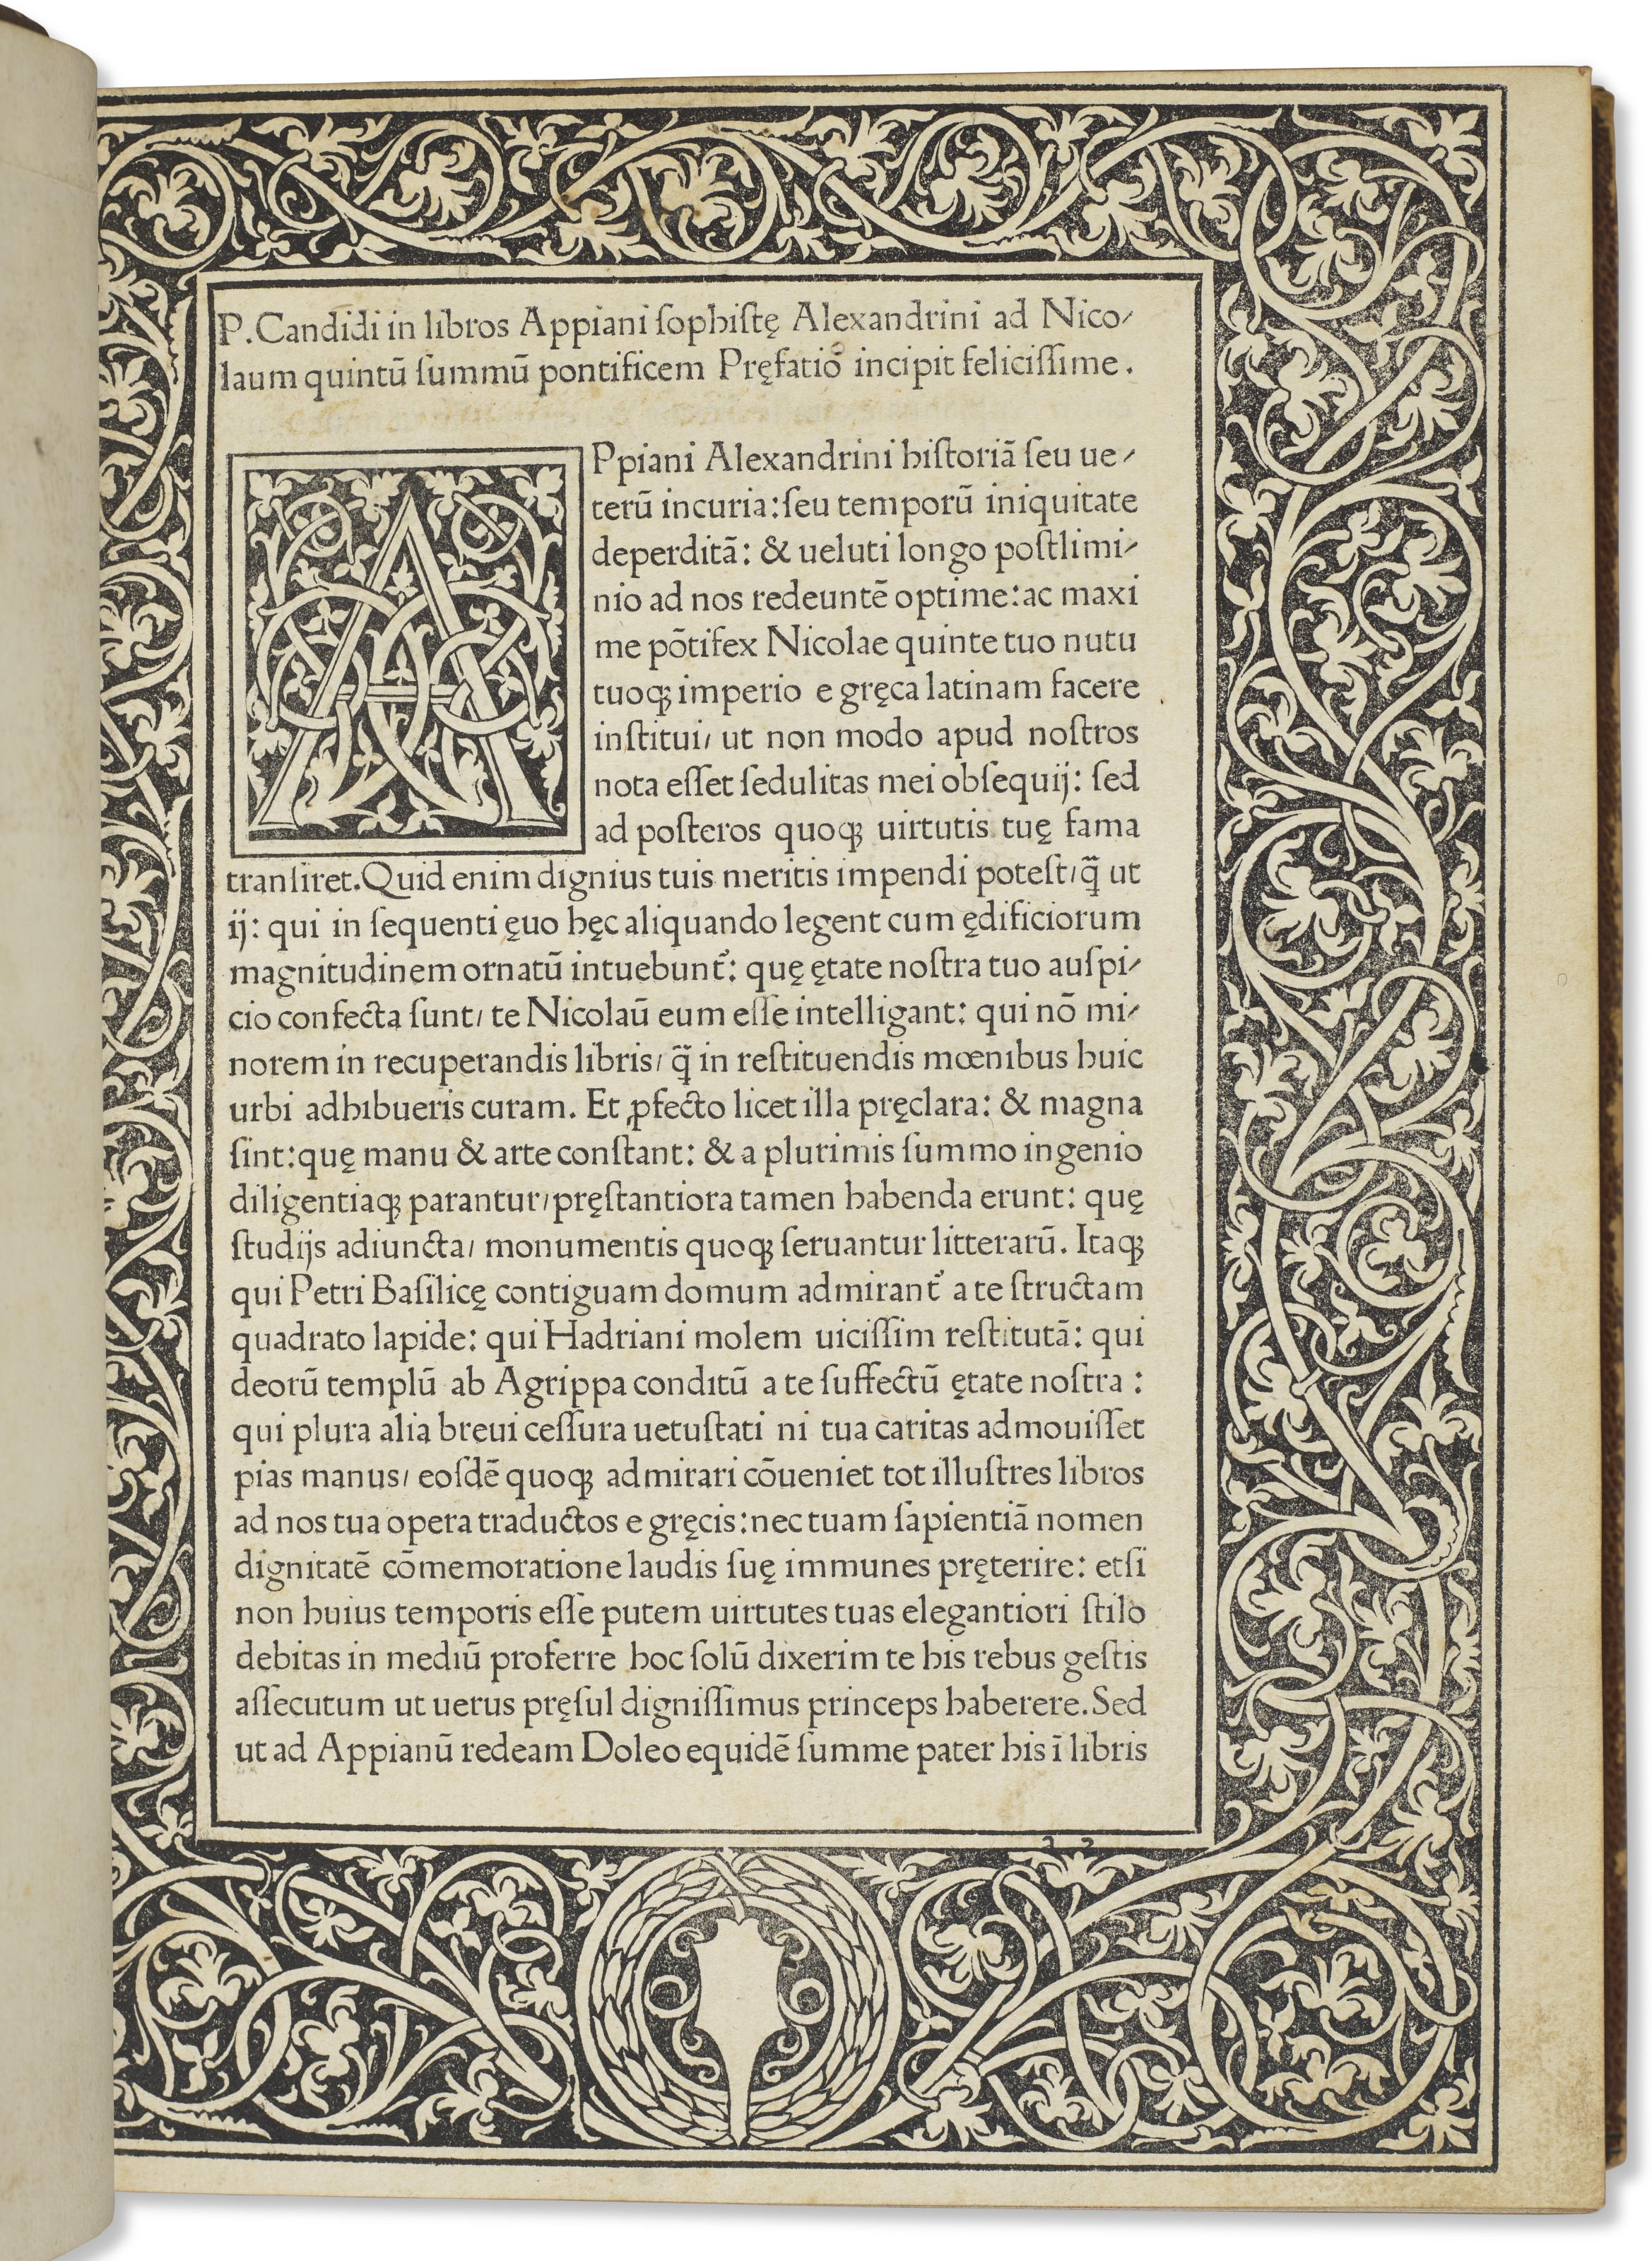 P.Candidi in libros Appiani sophiſtę Alexandrini ad Nico⸗
laum quintū ſummū pontificem Pręfatiō incipit feliciſſime.
APpiani Alexandrini hiſtoriā ſeu ue⸗
terū incuria:ſeu temporū iniquitate
deperditā: & ueluti longo poſtlimi⸗
nio ad nos redeuntē optime:ac maxi
me pōtifex Nicolae quinte tuo nutu
tuoqꝫ imperio e gręca latinam facere
inſtitui/ ut non modo apud noſtros
nota eſſet ſedulitas mei obſequij: ſed
ad poſteros quoqꝫ uirtutis tuę fama
tranſiret.Quid enim dignius tuis meritis impendi poteſt/q̄ ut
ij: qui in ſequenti ęuo hęc aliquando legent cum ędificiorum
magnitudinem ornatū intuebunt᷒: quę ętate noſtra tuo auſpi⸗
cio confecta ſunt/ te Nicolaū eum eſſe intelligant: qui nō mi⸗
norem in recuperandis libris/ q̄ in reſtituendis mœnibus huic
urbi adhibueris curam. Et ꝓfecto licet illa pręclara: & magna
ſint:quę manu & arte conſtant: & a plurimis ſummo ingenio
diligentiaqꝫ parantur/pręſtantiora tamen habenda erunt: quę
ſtudijs adiuncta/ monumentis quoqꝫ ſeruantur litterarū. Itaqꝫ
qui Petri Baſilicę contiguam domum admirant᷒ a te ſtructam
quadrato lapide: qui Hadriani molem uiciſſim reſtitutā: qui
deorū templū ab Agrippa conditū a te ſuffectū ętate noſtra :
qui plura alia breui ceſſura uetuſtati ni tua caritas admouiſſet
pias manus/ eoſdē quoqꝫ admirari cōueniet tot illuſtres libros
ad nos tua opera traductos e gręcis:nec tuam ſapientiā nomen
dignitatē cōmemoratione laudis ſuę immunes pręterire: etſi
non huius temporis eſſe putem uirtutes tuas elegantiori ſtilo
debitas in mediū proferre hoc ſolū dixerim te his rebus geſtis
aſſecutum ut uerus pręſul digniſſimus princeps haberere.Sed
ut ad Appianū redeam Doleo equidē ſumme pater his ī libris